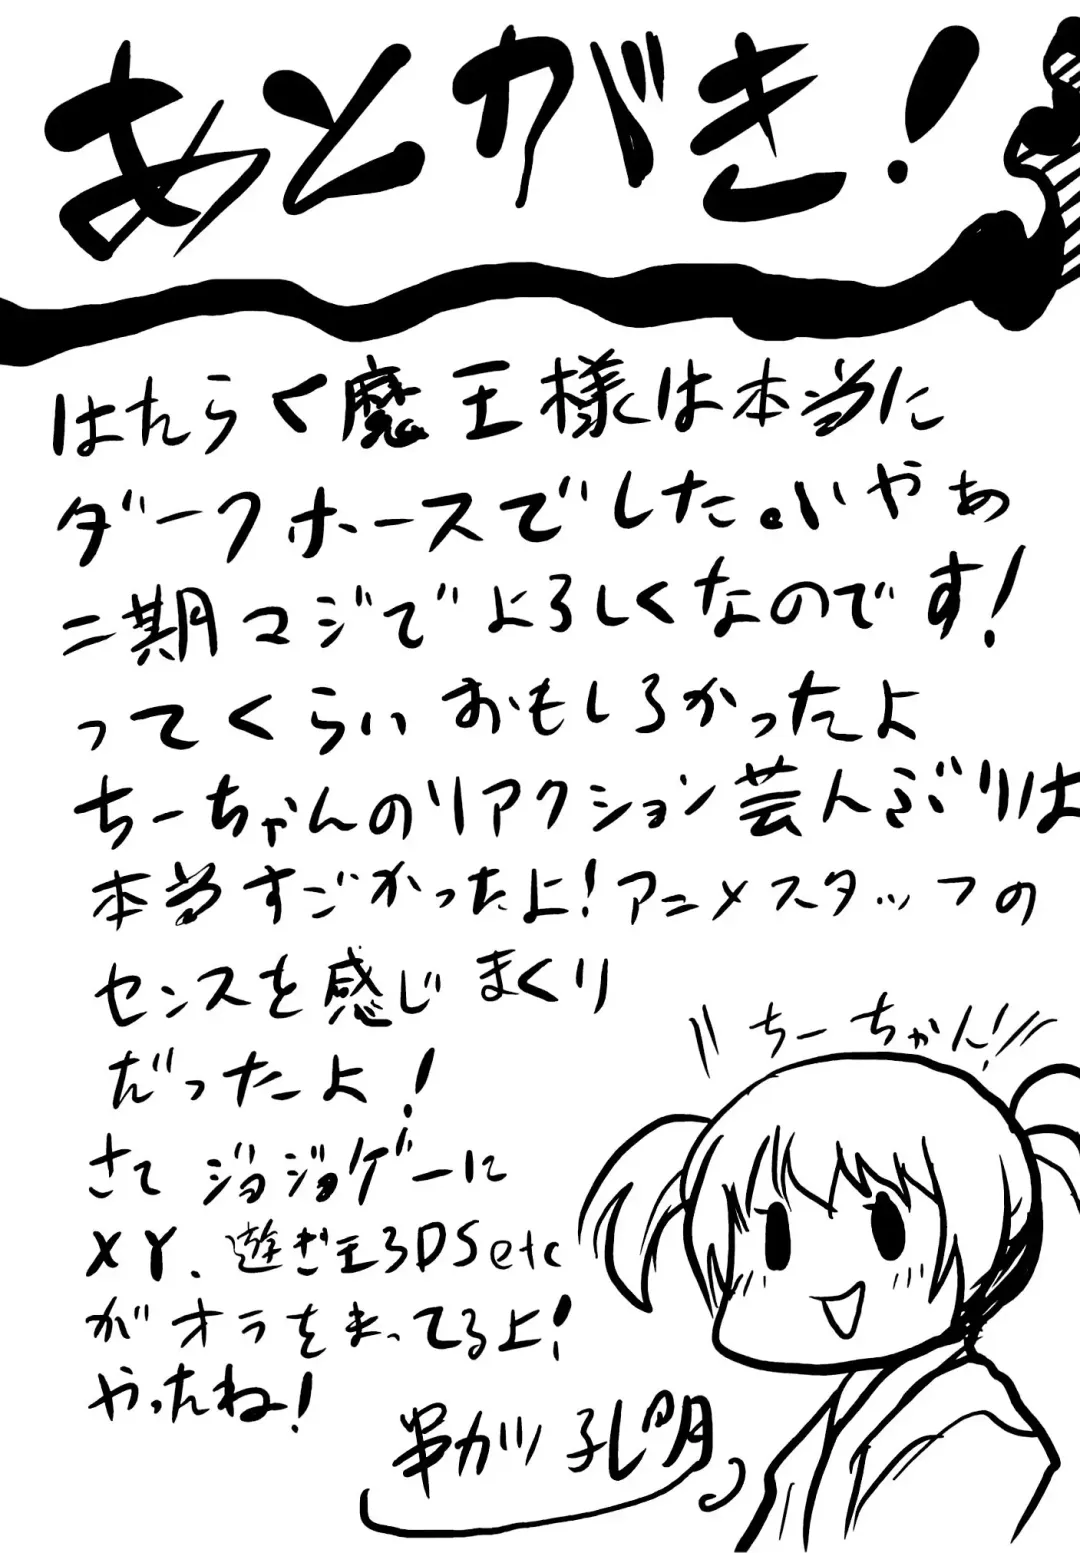 あとがき!
はたらく魔王様は本当に
ダークホースでした。いやぁ
二期マジでよろしくなのです!
ってくらいおもしろかったよ
ちーちゃんのリアクション芸人ぶりは
本当すごかったよ!アニメスタッフの
センスを感じまくり
だったよ!
ちーちゃん!
さて ジョジョゲーに
XY、遊ぎ王3DSetc
がオラをまってるよ!
やったね!
串カツ孔明